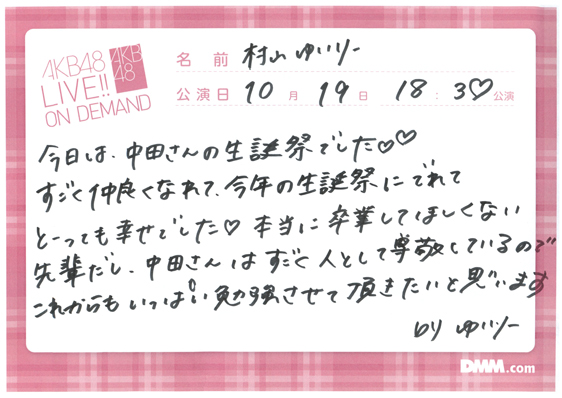 AKB48
LIVE!!
ON DEMAND
AKB
48
名前 村山ゆいりー
公演日 10月19日 18:30公演
今日は、中田さんの生誕祭でした♡♡
すごく仲良くなれて、今年の生誕祭にでれて
とーっても幸せでした♡ 本当に卒業してほしくない
先輩だし、中田さんはすごく人として尊敬しているので
これからもいっぱい勉強させて頂きたいと思います
by ゆいりー
DMM.com